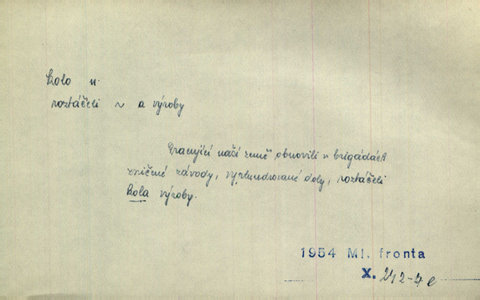 kolo n.
roztáčeli ~ a výroby
Pracující naší země obnovili v brigádách
zničené závody, vyplundrované doly, roztáčeli
kola výroby.
1954 Ml. fronta
X. 242-4e